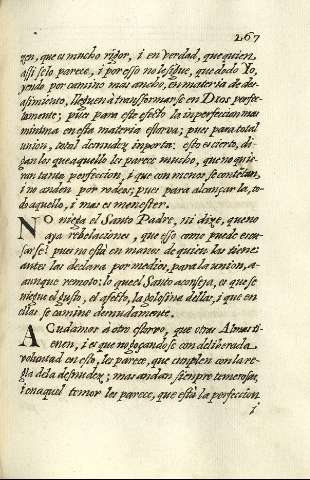 267
zen, que es mucho rigor, i en verdad, que quien
assi se lo parece, i por esso no lo sigue, que dudo Yo,
yendo por camino mas ancho, en materia de des-
asimiento, lleguen à transformarse en Dios perfec-
tamente; pues para este efecto la inperfeccion mas
minima en esta materia estorva; pues para total
union, total desnudez inporta: esto es cierto, di-
gan los que aquello les parece mucho, que no quie-
ren tanta perfeccion, i que con menos se contētan,
i no anden por rodeos; pues para alcançarla, to-
do aquello, i mas es menester.
NO niega el Santo Padre, ni dize, que no
aya rebelaciones, que esso como puede escu-
sarse? pues no està en manos de quien las tiene:
antes las declara por medios, para la union, a-
unque remoto: lo que el Santo aconseja, es que se
niegue el gusto, el afecto, la golosina dellas, i que en
ellas se camine desnudamente.
ACudamos à otro estorvo, que otras Almas ti-
enen, i es que negogandose con deliberada
voluntad en esto, les parece, que cumplen con la re-
gla de la desnudez; mas andan sienpre temerosas,
i en aquel temor les parece, que està la perfeccion
i